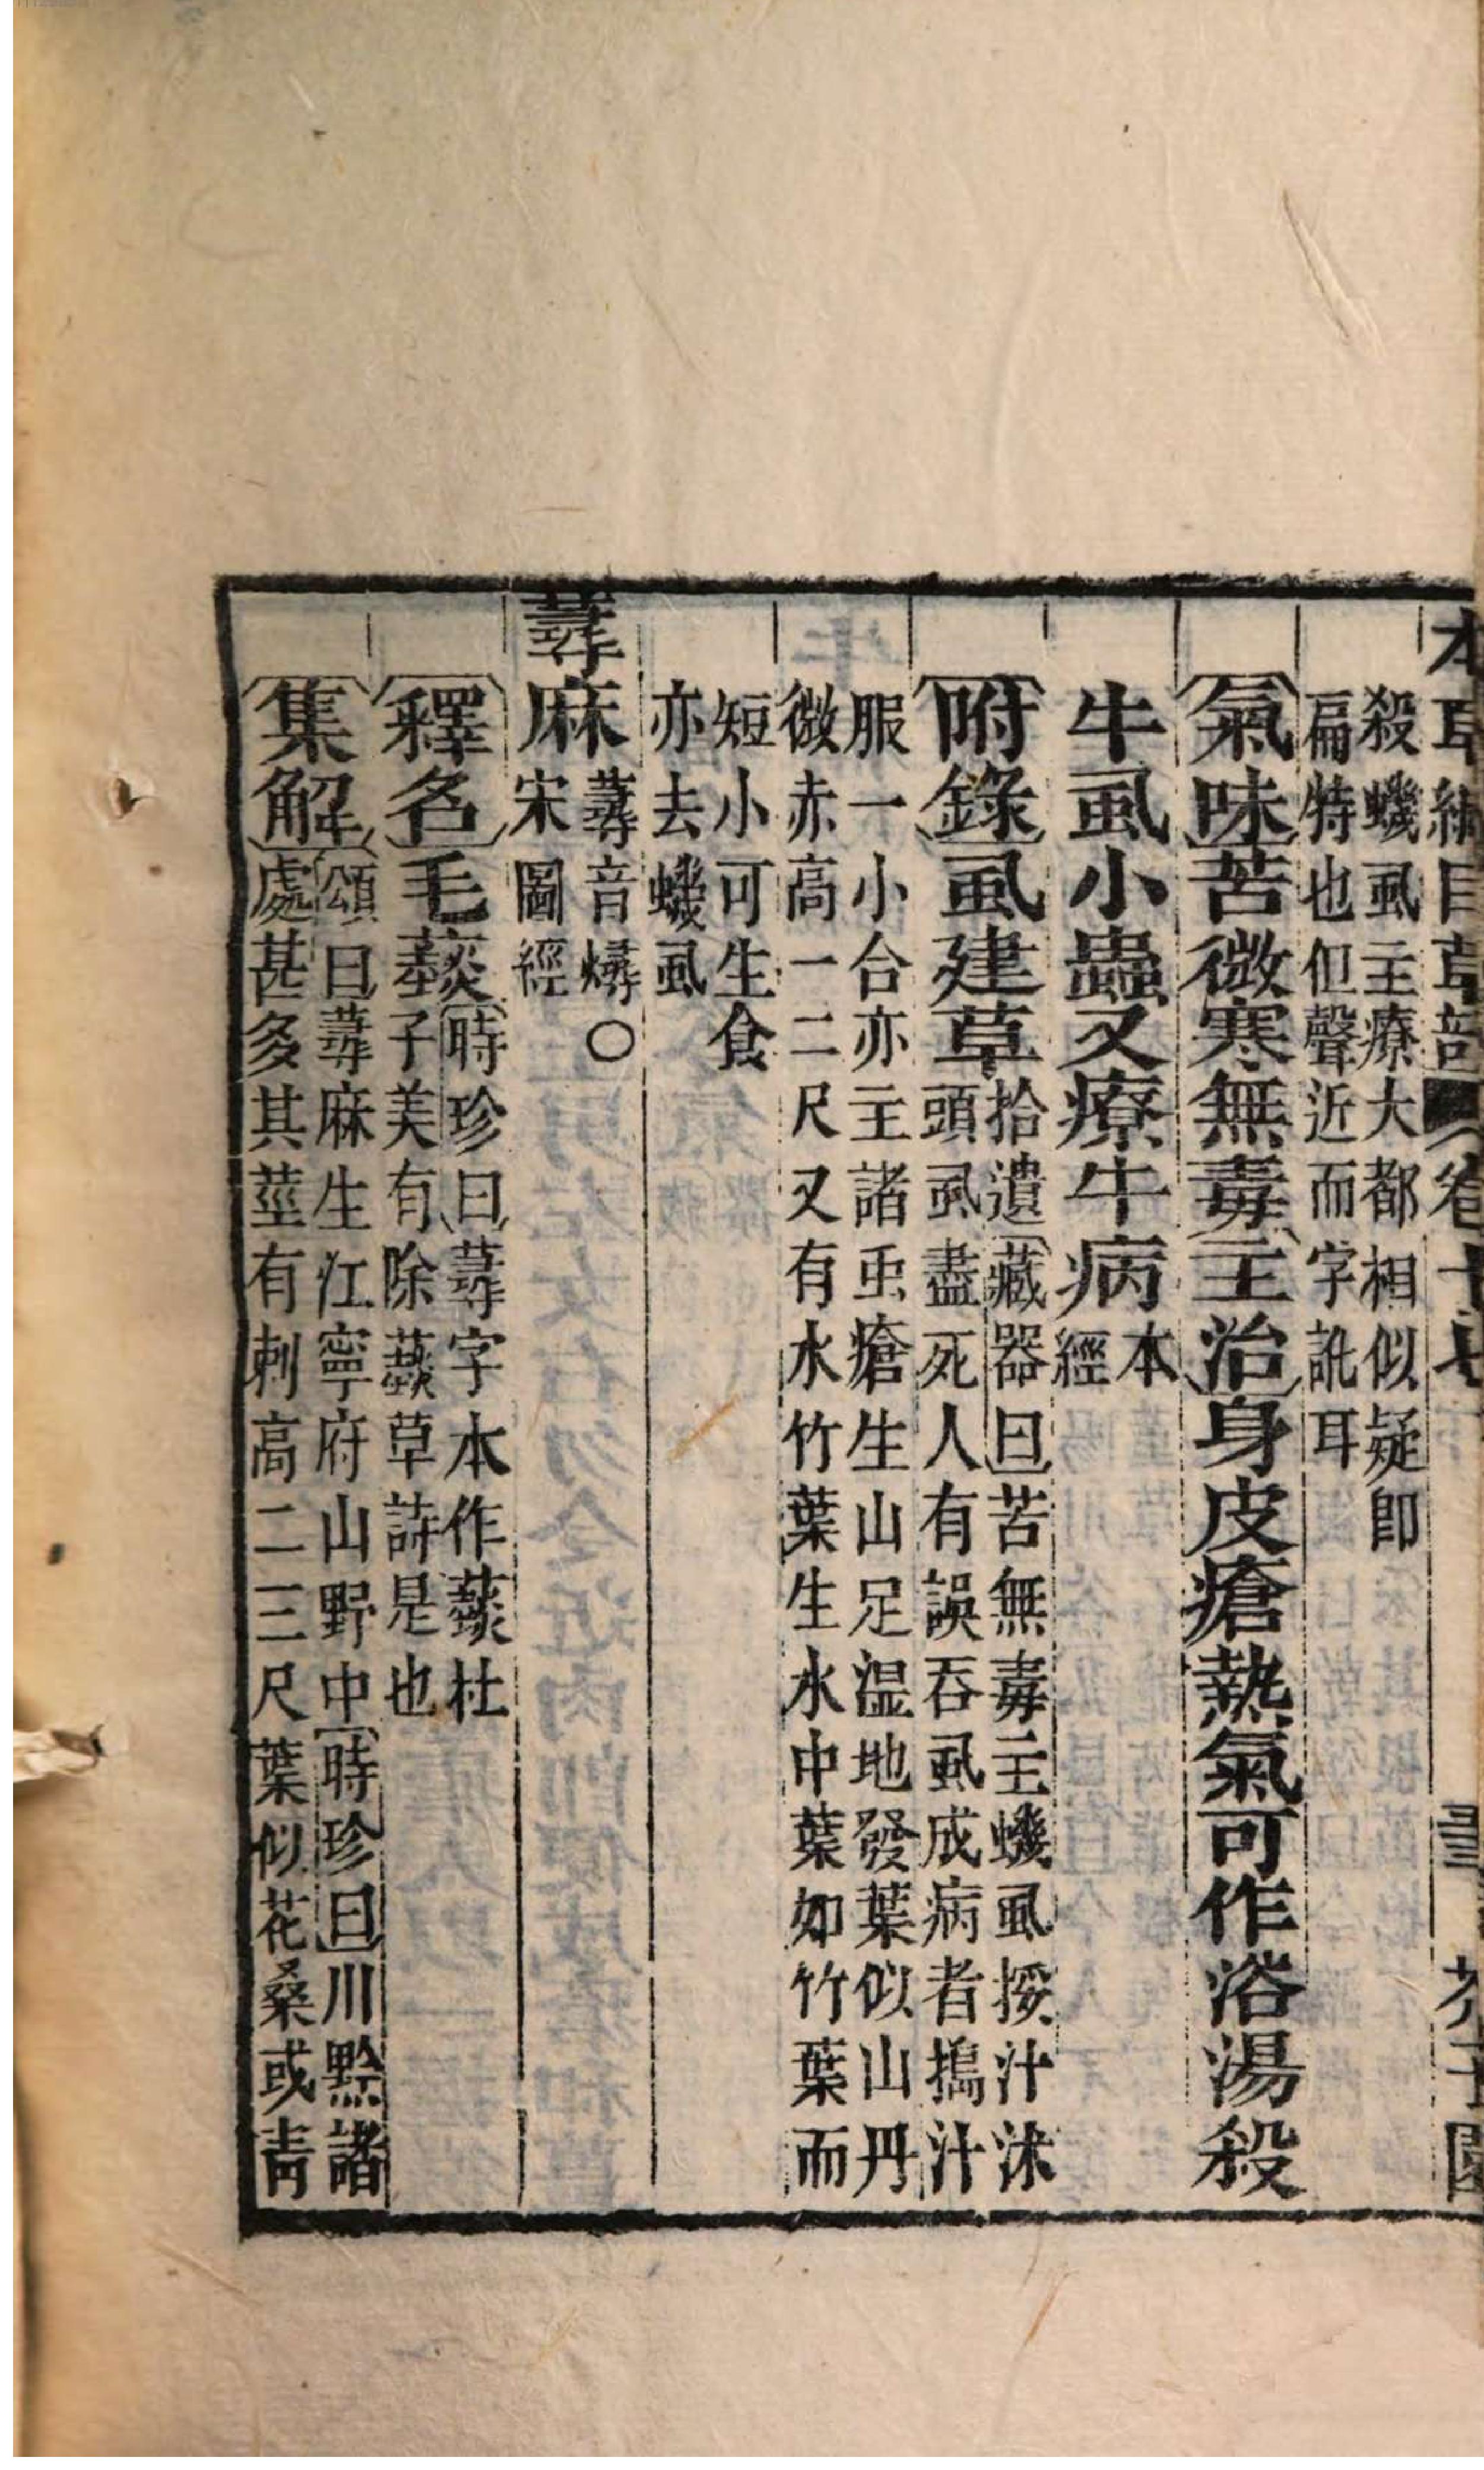 本草綱目草部 卷十七 芥子園
殺蟣虱主療大都相似疑即
扁特也但聲近而字訛耳
氣味苦微寒無毒主治身皮瘡熱氣可作浴湯殺
牛虱小蟲又療牛病
本
經
附錄虱建草
拾遺藏器曰苦無毒主蟣虱挼汁沐
頭虱盡死人有誤吞虱成病者搗汁
服一小合亦主諸虫瘡生山足湿地發葉似山丹
微赤高一二尺又有水竹葉生水中葉如竹葉而
短小可生食
亦去蟣虱
蕁麻
蕁音燖○
宋圖經
釋名毛䕭
時珍曰蕁字本作䕭杜
子美有除䕭草詩是也
集解
頌曰蕁麻生江寧府山野中時珍曰川黔諸
處甚多其莖有刺高二三尺葉似花桑或青